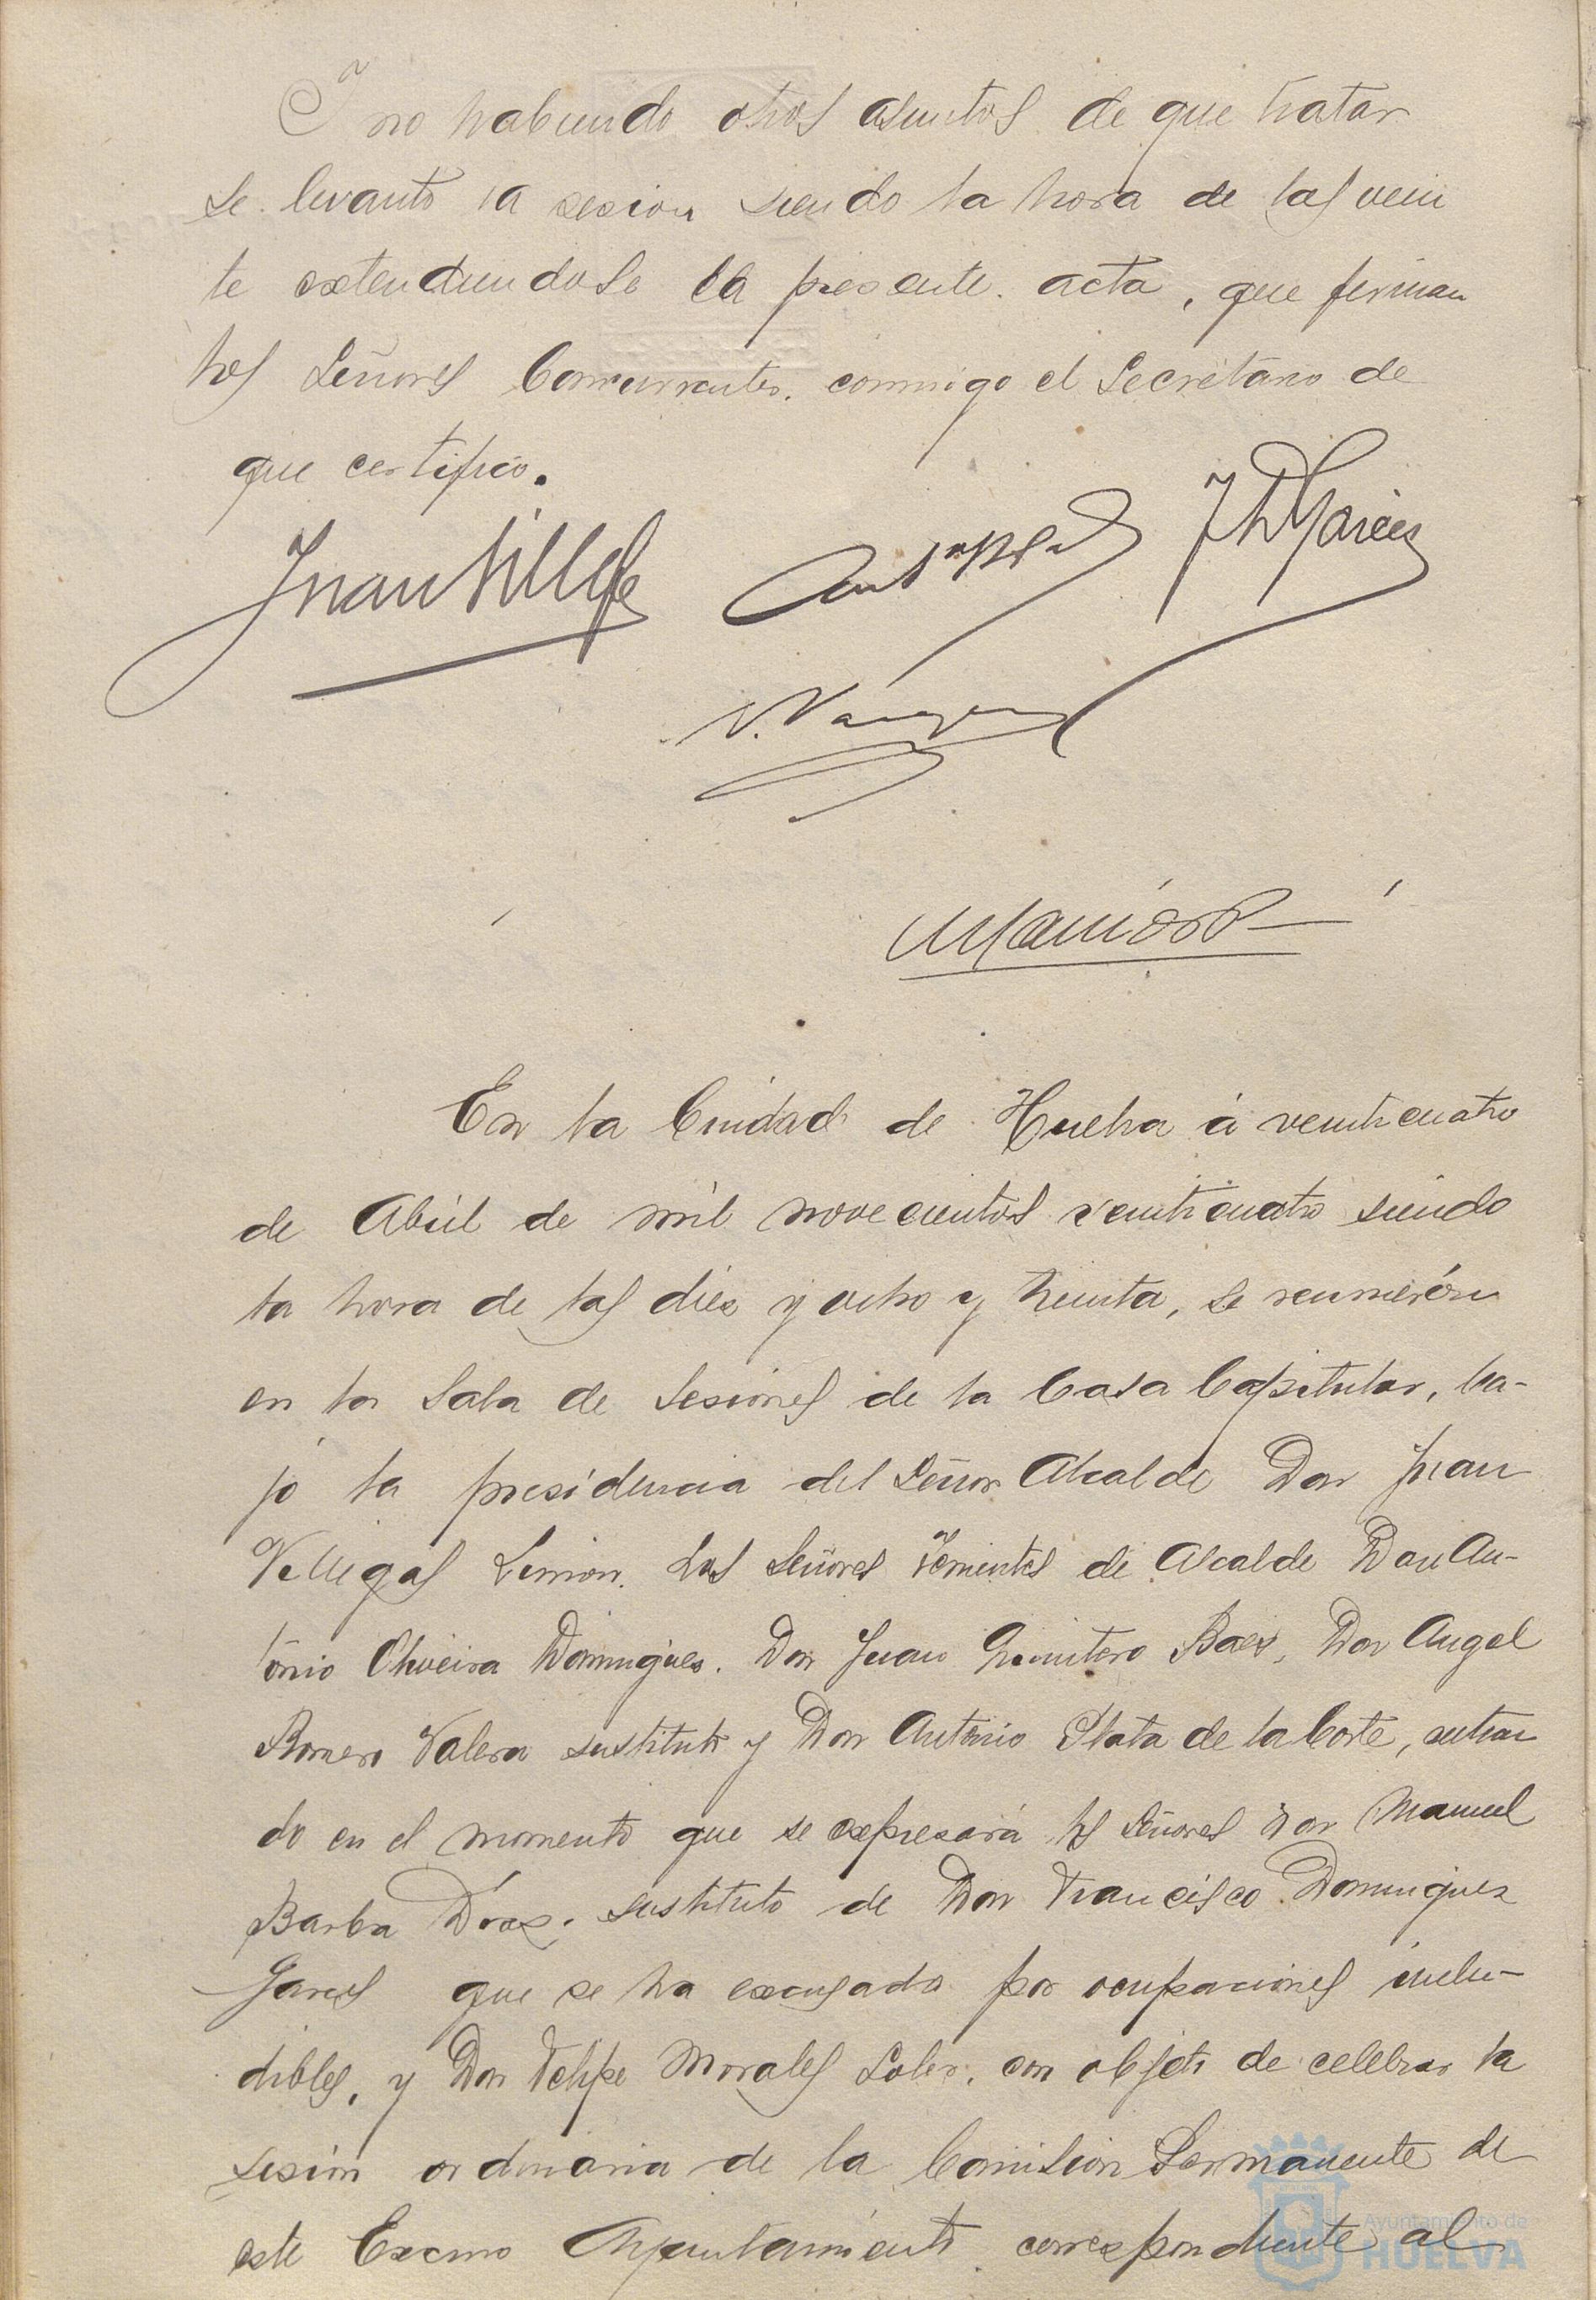 Y no habiendo otros asuntos de que tratar
se levantó la sesion siendo la hora de las vein
te extendiendose la presente acta, que firman
los Señores Concurrentes. conmigo el Secretario de
que certifico.
Juan Ville
V. Vazquez
En la Ciudad de Huelva á veinticuatro
de Abril de mil novecientos veinticuatro siendo
la hora de las diez y ocho y treinta, se reunierón
en la Sala de Sesiones de la Casa Capitular, ba-
jo la presidencia del Señor Alcalde Don Juan
Villegas Limon. Los Señores Tenientes de Alcalde Don An-
tonio Oliveira Dominguez. Don Juan Quintero Baez, Don Angel
Romero Valera sustituto y Don Antonio Plata de la Corte, entran
do en el momento que se expresará los Señores Don Manuel
Barba Diaz. sustituto de Don Francisco Dominguez
Garces que se ha excusado por ocupaciones inelu-
dibles, y Don Felipe Morales Soler, con objeto de celebrar la
sesión ordinaria de la Comision Permanente de
este Excmo Ayuntamiento correspondiente al
Ayuntamiento de
HUELVA